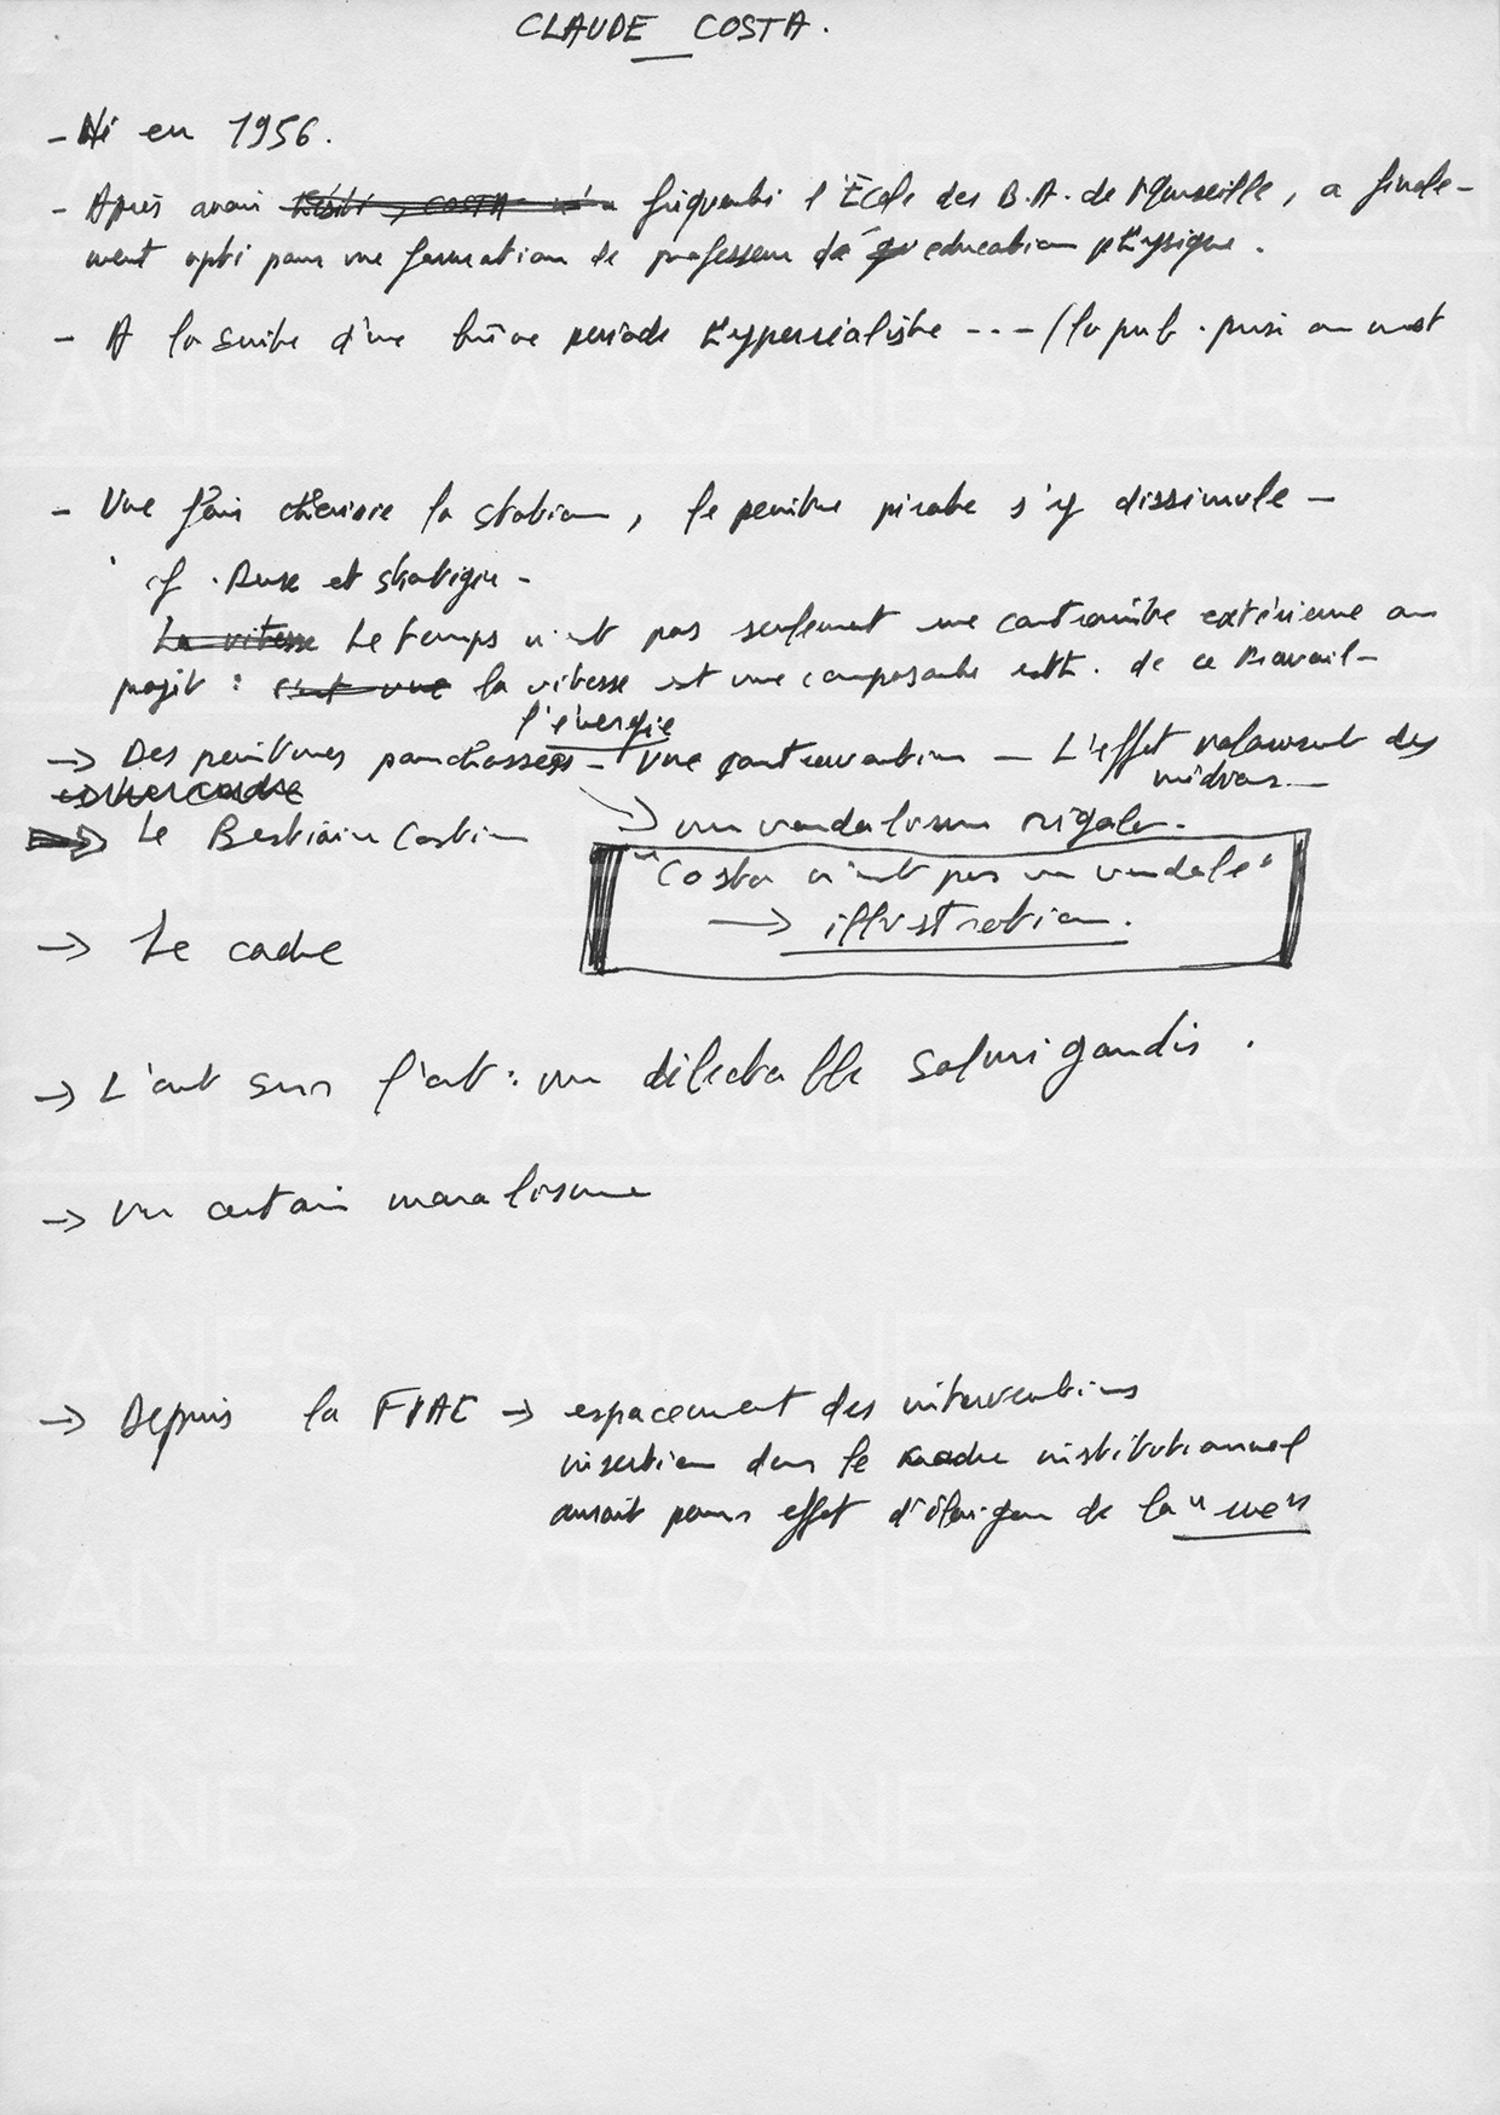 CLAUDE COSTA.
- Né en 1956.
- Après avoir fréquenté l'École des B.A. de Marseille, a finale-
ment opté pour une formation de professeur d'éducation physique.
- A la suite d'une brève période hyperréaliste --- (la pub. prise au mot
- Une fois choisie la station, le peintre pirate s'y dissimule -
cf. Ruse et stratégie -
La vitesse Le temps n'est pas seulement une contrainte extérieure au
projet : c'est une la vitesse est une composante esth. de ce travail -
l'énergie
→ Des peintures pourchassées - Une contrevention - L'effet valorisant des
médias -
→ Le Bestiaire Costien
→ un vandalisme rigolo.
"Costa n'est pas un vandale"
→ illustration.
→ Le cadre
→ L'art sur l'art : un délectable salmigondis.
→ Un certain moralisme
→ Depuis la FIAC → espacement des interventions
insertion dans le cadre institutionnel
aurait pour effet d'éloigner de la "rue"
ARCANES